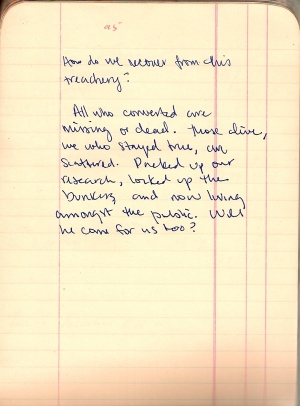 95
How do we recover from this
treachery?
All who converted are
missing or dead. Those alive,
we who stayed true, are
scattered. Packed up our
research, locked up the
bunkers, and now living
amongst the public. Will
he come for us too?